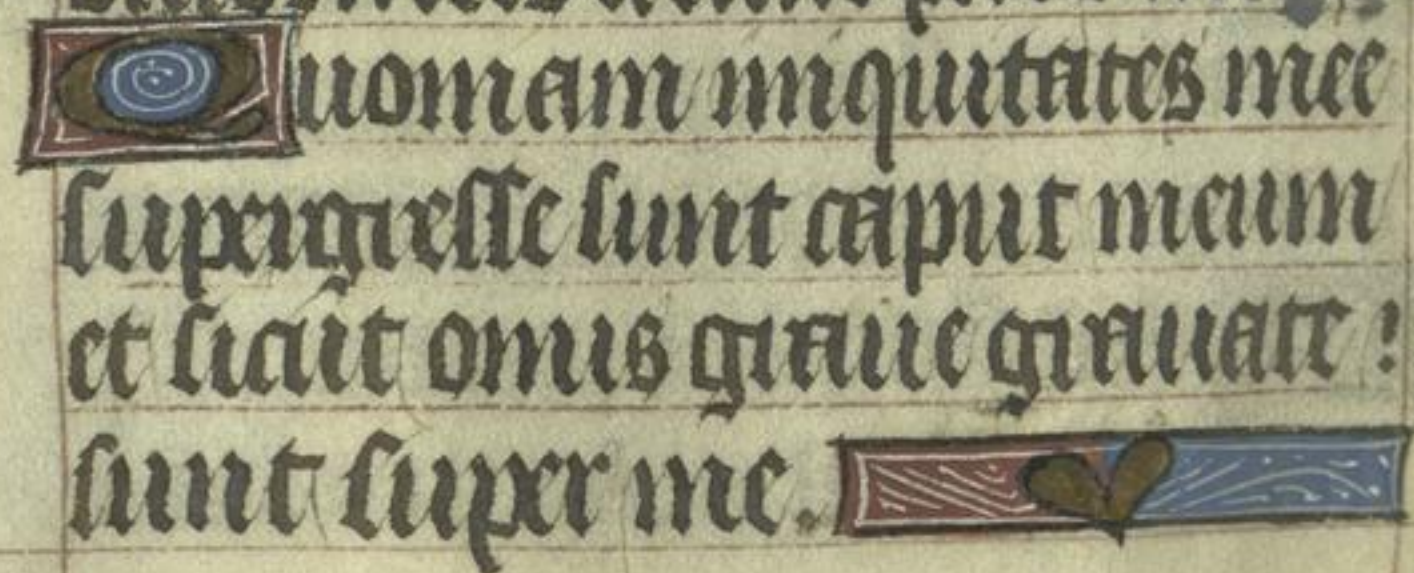 Quoniam iniquitates mee
supergresse sunt caput meum
et sicut onus graue grauate :
sunt super me.